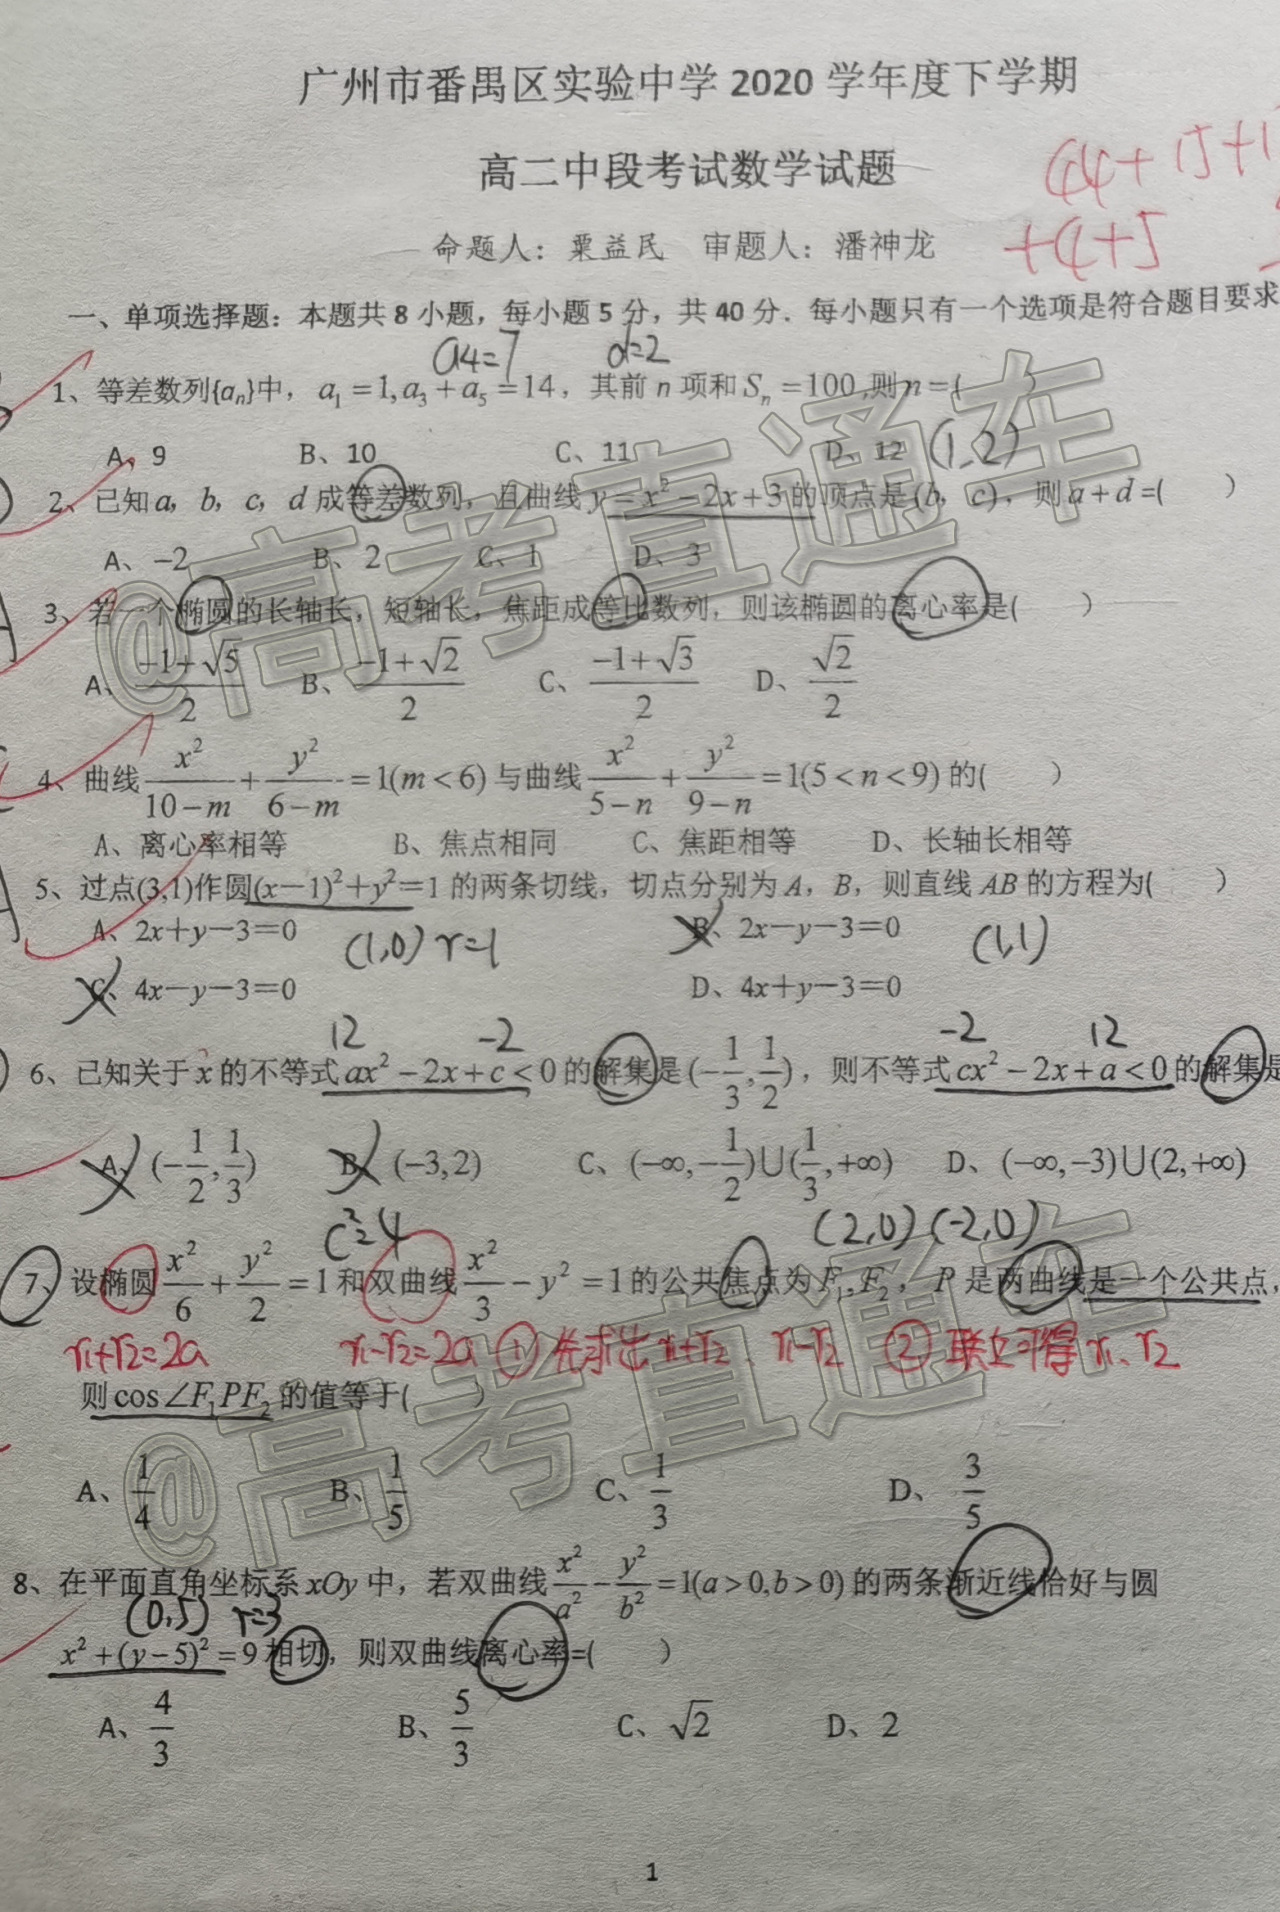 广州市番禺区实验中学 2020 学年度下学期
高二中段考试数学试题
44+15+1
+4+5
命题人：粟益民 审题人：潘神龙
一、单项选择题：本题共 8 小题，每小题 5 分，共 40 分．每小题只有一个选项是符合题目要求
a4=7 d=2
1、等差数列{aₙ}中，a₁=1,a₃+a₅=14，其前 n 项和 Sₙ=100,则 n=( )
A、9 B、10 C、11 D、12 (1,2)
2、已知 a，b，c，d 成等差数列，且曲线 y=x²−2x+3 的顶点是(b，c)，则 a+d=( )
A、−2 B、2 C、1 D、3
3、若一个椭圆的长轴长，短轴长，焦距成等比数列，则该椭圆的离心率是( )
A、(−1+√5)/2 B、(−1+√2)/2 C、(−1+√3)/2 D、√2/2
4、曲线 x²/(10−m)+y²/(6−m)=1(m<6)与曲线 x²/(5−n)+y²/(9−n)=1(5<n<9)的( )
A、离心率相等 B、焦点相同 C、焦距相等 D、长轴长相等
5、过点(3,1)作圆(x−1)²+y²=1 的两条切线，切点分别为 A，B，则直线 AB 的方程为( )
A、2x+y−3=0 B、2x−y−3=0
(1,0) r=1 (1,1)
C、4x−y−3=0 D、4x+y−3=0
12 -2 -2 12
6、已知关于 x 的不等式 ax²−2x+c<0 的解集是(−1/3,1/2)，则不等式 cx²−2x+a<0 的解集是
A、(−1/2,1/3) B、(−3,2) C、(−∞,−1/2)∪(1/3,+∞) D、(−∞,−3)∪(2,+∞)
c²=4 (2,0)(-2,0)
7、设椭圆 x²/6+y²/2=1 和双曲线 x²/3−y²=1 的公共焦点为 F₁,F₂，P 是两曲线是一个公共点，
r1+r2=2a r1-r2=2a ①先求出r1+r2、r1-r2 ②联立可得r1、r2
则 cos∠F₁PF₂ 的值等于( )
A、1/4 B、1/5 C、1/3 D、3/5
8、在平面直角坐标系 xOy 中，若双曲线 x²/a²−y²/b²=1(a>0,b>0)的两条渐近线恰好与圆
(0,5) r=3
x²+(y−5)²=9 相切，则双曲线离心率=( )
A、4/3 B、5/3 C、√2 D、2
1
@高考直通车
@高考直通车